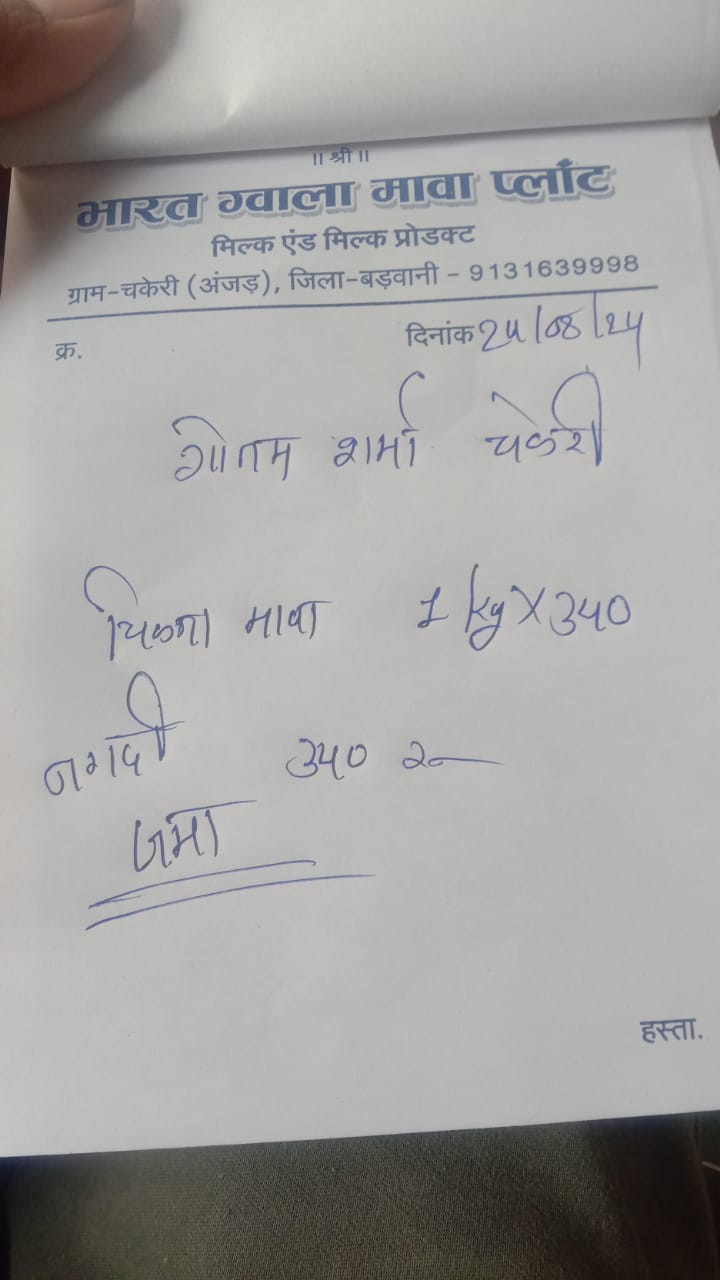 ॥ श्री ॥
भारत ग्वाला मावा प्लाँट
मिल्क एंड मिल्क प्रोडक्ट
ग्राम-चकेरी (अंजड़), जिला-बड़वानी - 9131639998
क्र. दिनांक 25/08/25
गोतम शर्मा चकेरी
चिकना मावा 1 kg X 340
नगदी 340 रु
जमा
हस्ता.